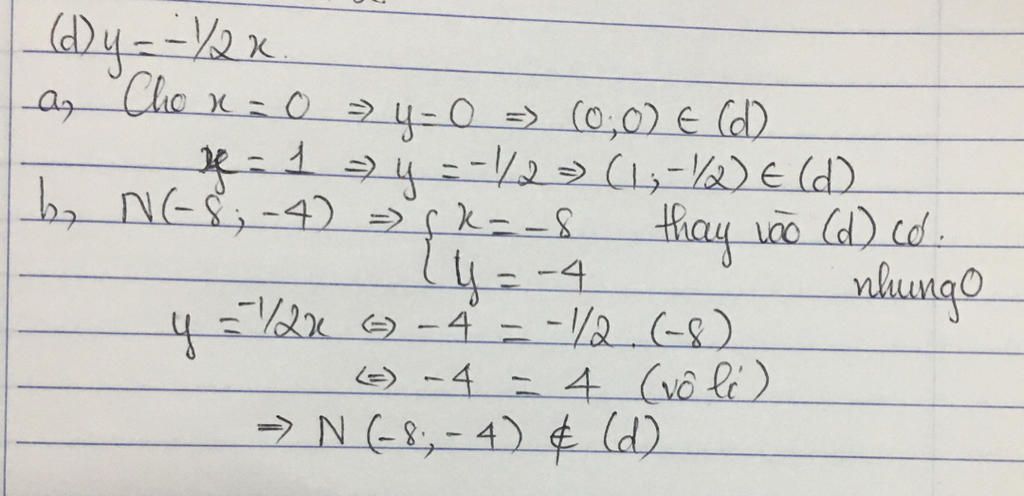 (d) y = -1/2 x.
a, Cho x = 0 => y = 0 => (0;0) ∈ (d)
x = 1 => y = -1/2 => (1;-1/2) ∈ (d)
b, N(-8; -4) => { x = -8 thay vào (d) có:
{ y = -4 nhung0
y = -1/2x <=> -4 = -1/2 . (-8)
<=> -4 = 4 (vô lí)
=> N (-8; -4) ∉ (d)